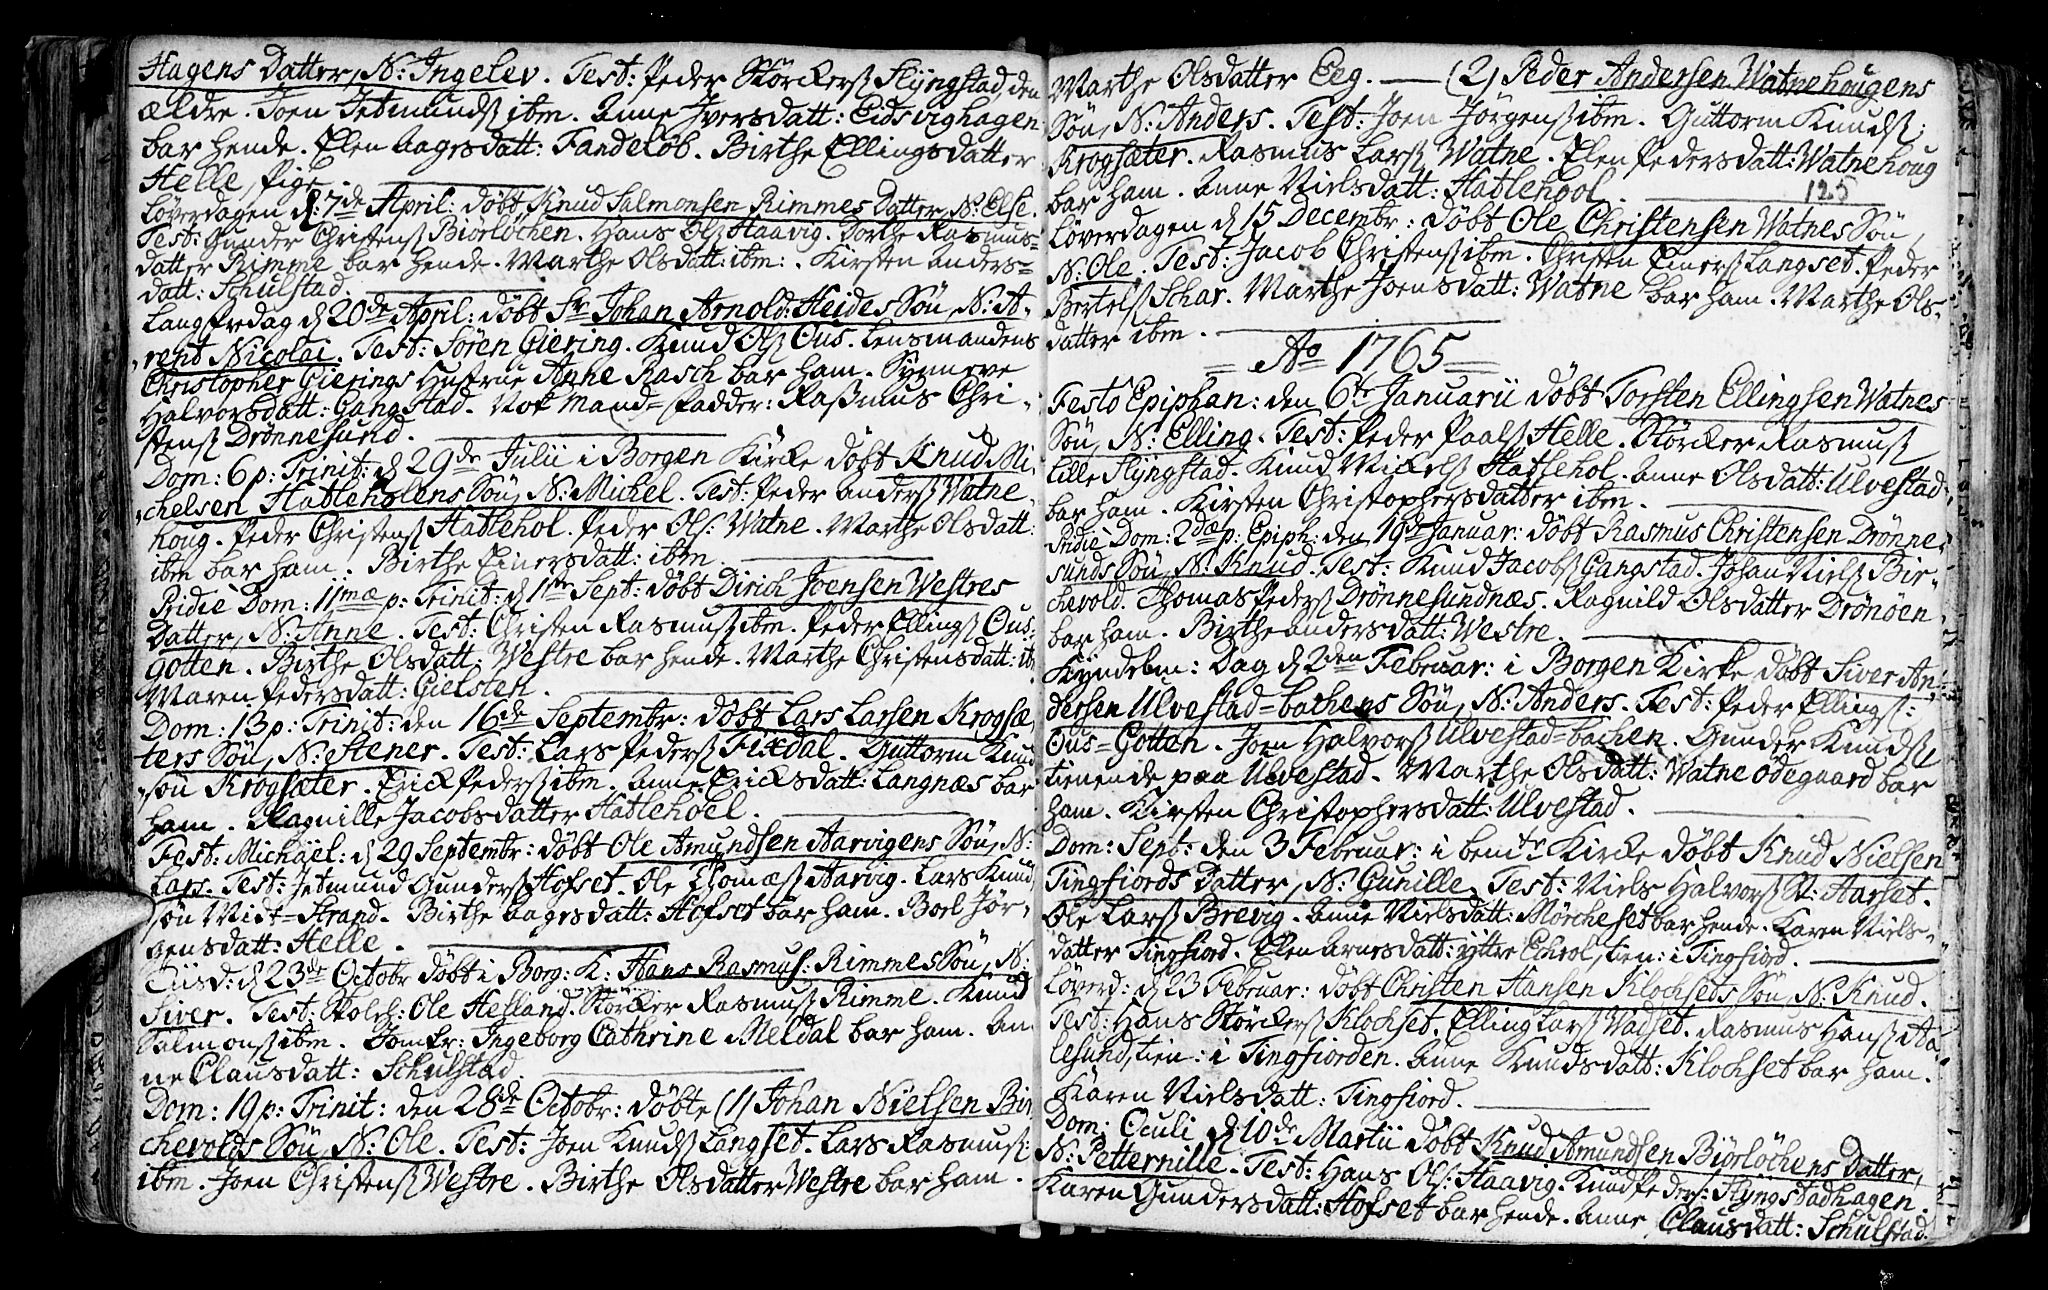 Hagens Datter, N: Ingelev. Test: Peder Störchers Slÿngstad, den
ældre. Joen Jetmunds ibm. Anne Iversdatt: Eidsvighagen
bar hende. Elen Aagesdatt: Fandelöb. Birthe Ellingsdatter
Helle, Pige
Löverdagen d: 7de April: döbt Knud Salmonsen Rimmes Datter N: Else.
Test: Gunder Christens Biörlöchen. Hans Ols Haavig. Dorthe Rasmus-
datter Rimme bar hende. Marthe Olsdatt: ibm: . Kirsten Anders-
datt: Schulstad.
Langfredag d 20de April: döbt Sr Johan Arnold: Heides Sön, N: A-
rent Nicolai. Test: Sören Giering. Knud Ols Ous. Lensmandens
Christopher Gierings Hustrue Anne Rasch bar ham. Synneve
Halvorsdatt: Gangstad. Nok Mand-fadder: Rasmus Chri-
stens Drönnesund.
Dom: 6 p: Trinit: d 29de Julii i Borgen Kircke döbt Knud Mi-
chelsen Hatleholens Sön, N: Michel. Test: Peder Anders Watne
houg. Peder Christens Hatlehol. Peder Ols: Watne. Marthe Olsdatt:
ibm bar ham. Birthe Einersdatt: ibm.
Pridie Dom: 11mæ p: Trinit: d 1ten Sept: döbt Dirich Joensen Westres
Datter, N: Anne. Test: Christen Rasmus ibm. Peder Ellings Ous-
gotten. Birthe Olsdatt: Westre bar hende. Marthe Christensdatt: ib
Maren Pedersdatt: Gielsten.
Dom: 13 p: Trinit: den 16de Septembr: döbt Lars Larsen Krogsæ-
ters Sön, N: Stener. Test: Lars Peders Fixdal. Guttorm Knud
sön Krogsæter. Erick Peders ibm. Anne Ericksdatt: Langnæs bar
ham. Ragnille Jacobsdatter Hatlehoel.
Fest: Michäel: d 29 Septembr: döbt Ole Amundsen Aarvigens Sön, N:
Lars. Test: Jetmund Gunders Hofset. Ole Thomæs Aarvig. Lars Knud
sön Midt-Strand. Birthe Aagesdatt: Hofset bar ham. Boel Jör-
gensdatt: Helle.
Tiisd: d 23de Octobr döbt i Borg: K: Hans Rasmus: Rimmes Sön, N:
Siver. Test: Skoleh: Ole Helland. Störcker Rasmus Rimme. Knud
Salmons ibm. Jomfr: Ingeborg Cathrine Meldal bar ham. An-
ne Clausdatt: Schulstad.
Dom: 19 p: Trinit: den 28de Octobr: döbte (1) Johan Nielsen Bir
chevolds Sön, N: Ole. Test: Joen Knuds Langset. Lars Rasmus:
ibm. Joen Christens Westre. Birthe Olsdatter Westre bar ham.
Marthe Olsdatter Eeg. (2) Peder Andersen Watnehougens
Sön, N: Anders. Test: Joen Jörgens ibm. Guttorm Knuds
Krogsæter. Rasmus Lars Watne. Elen Pedersdatt: Watnehoug
bar ham. Anne Nielsdatt: Hatlehool.
128
Löverdagen d 15 Decembr: döbt Ole Christensen Watnes Sön,
N: Ole. Test: Jacob Christens ibm. Christen Einers Langset. Peder
Bertels Schar. Marthe Joensdatt: Watne bar ham. Marthe Ols-
datter ibm.
Ao 1765
Festo Epiphan: den 6te Januarii döbt Torsten Ellingsen Watnes
Sön, N: Elling. Test: Peder Paals Helle. Störcker Rasmus
Lille Slÿngstad. Knud Mickels Hatlehol. Anne Olsdatt: Ulvestad
bar ham. Kirsten Christophersdatter ibm.
Pridie Dom: 2dæ p: Epiph: den 19de Januar: döbt Rasmus Christensen Drönne-
sunds Sön, N: Knud. Test: Knud Jacobs Gangstad. Johan Niels Bir-
chevold. Thomas Peders Drönnesundnæs. Ragnild Olsdatter Drönöen
bar ham. Birthe Andersdatt: Westre.
Kyndelm: Dag d 2den Februar: i Borgen Kirke döbt Siver An-
dersen Ulvestad-bachens Sön, N: Anders. Test: Peder Ellings:
Ous-Gotten. Joen Halvors Ulvestad-bachen. Gunder Knuds
tienende paa Ulvestad. Marthe Olsdatt: Watne Ödegaard bar
ham. Kirsten Christophersdatt: Ulvestad.
Dom: Sept: den 3 Februar: i bemte Kircke döbt Knud Nielsen
Tingfiords Datter, N: Gunille. Test: Niels Halvors St: Aarset.
Ole Lars Brevig. Anne Nielsdatt: Mörcheset bar hende. Karen Niels-
datter Tingfiord. Elen Arnesdatt: yttre Echrol, tien: i Tingfiord.
Löverd: d 23 Februar: döbt Christen Hansen Klochsets Sön, N: Knud.
Test: Hans Störckers Klochset. Elling Lars Vadset. Rasmus Hans Aa-
lesund, tien: i Tingfiorden. Anne Knudsdatt: Klochset bar ham.
Karen Nielsdatt: Tingfiord.
Dom: Oculi d 10de Martii döbt Knud Amundsen Biörlöchens Datter,
N: Petternille. Test: Hans Ols: Haavig. Knud Peders: Slÿngstadhagen.
Karen Gundersdatt: Hofset bar hende. Anne Clausdatt: Schulstad.